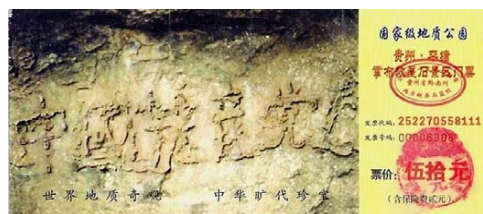 中國共產党亡
世界地质奇观 中华旷代珍宝
国家级地质公园
贵州·平塘
掌布藏字石景区门票
贵州省黔南州
发票代码: 252270558111
发票号码: 00008306
票价: 伍拾元
(含保险费贰元)